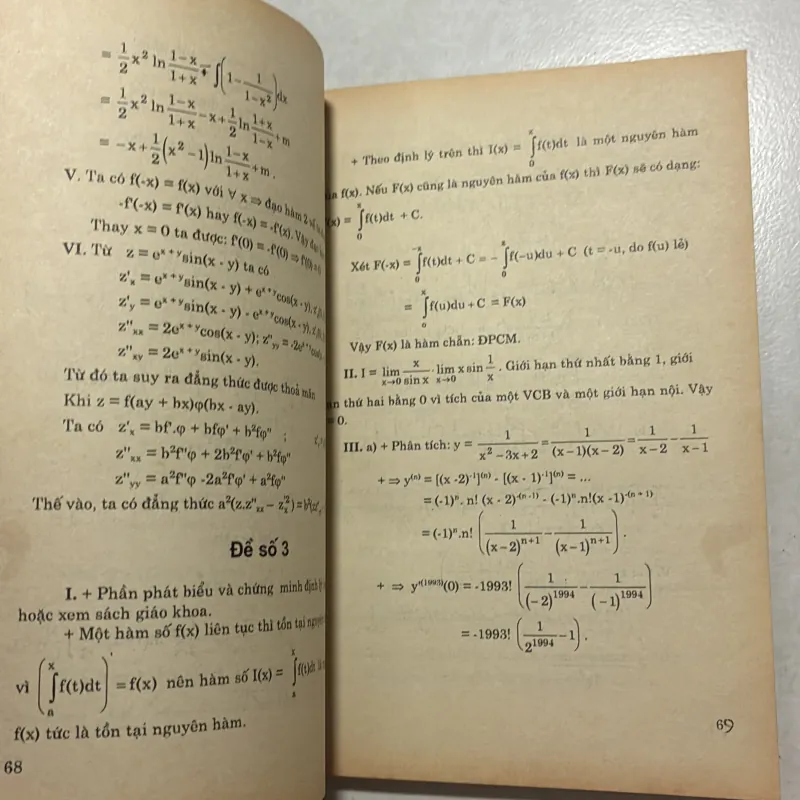 = 1/2 x² ln (1−x)/(1+x) + ∫(1 − 1/(1−x²))dx
= 1/2 x² ln (1−x)/(1+x) − x + 1/2 ln (1+x)/(1−x) + m
= −x + 1/2 (x² −1) ln (1−x)/(1+x) + m .
V. Ta có f(-x) = f(x) với ∀ x ⇒ đạo hàm 2
-f'(-x) = f'(x) hay f(-x) = -f'(x). Vậy
Thay x = 0 ta được: f'(0) = -f'(0) ⇒ f'(0) =
VI. Từ z = eˣ⁺ʸsin(x - y) ta có
z'ₓ = eˣ⁺ʸsin(x - y) + eˣ⁺ʸcos(x - y),
z'ᵧ = eˣ⁺ʸsin(x - y) - eˣ⁺ʸcos(x - y),
z''ₓₓ = 2eˣ⁺ʸcos(x - y); z''ᵧᵧ = -2eˣ⁺ʸ
z''ₓᵧ = 2eˣ⁺ʸsin(x - y).
Từ đó ta suy ra đẳng thức được thoả mãn
Khi z = f(ay + bx)φ(bx - ay).
Ta có z'ₓ = bf'.φ + bfφ' + b²fφ" ;
z''ₓₓ = b²f"φ + 2b²f'φ' + b²fφ"
z''ᵧᵧ = a²f"φ -2a²f'φ' + a²fφ"
Thế vào, ta có đẳng thức a²(z.z''ₓₓ − z'ₓ²) = b²(
Đề số 3
I. + Phần phát biểu và chứng minh định lý
hoặc xem sách giáo khoa.
+ Một hàm số f(x) liên tục thì tồn tại nguyên
vì (∫ₐˣ f(t)dt)' = f(x) nên hàm số I(x) = ∫ₐˣ f(t)dt là
f(x) tức là tồn tại nguyên hàm.
68
+ Theo định lý trên thì I(x) = ∫₀ˣ f(t)dt là một nguyên hàm
của f(x). Nếu F(x) cũng là nguyên hàm của f(x) thì F(x) sẽ có dạng:
F(x) = ∫₀ˣ f(t)dt + C.
Xét F(-x) = ∫₀⁻ˣ f(t)dt + C = − ∫₀ˣ f(−u)du + C (t = -u, do f(u) lẻ)
= ∫₀ˣ f(u)du + C = F(x)
Vậy F(x) là hàm chẵn: ĐPCM.
II. I = lim x→0 x/sin x . lim x→0 x sin 1/x . Giới hạn thứ nhất bằng 1, giới
hạn thứ hai bằng 0 vì tích của một VCB và một giới hạn nội. Vậy
= 0.
III. a) + Phân tích: y = 1/(x² −3x + 2) = 1/((x −1)(x − 2)) = 1/(x − 2) − 1/(x −1)
+ ⇒ y⁽ⁿ⁾ = [(x -2)⁻¹]⁽ⁿ⁾ - [(x - 1)⁻¹]⁽ⁿ⁾ = ...
= (-1)ⁿ. n! (x - 2)⁻⁽ⁿ⁺¹⁾ - (-1)ⁿ.n!(x -1)⁻⁽ⁿ⁺¹⁾
= (-1)ⁿ.n! (1/(x−2)ⁿ⁺¹ − 1/(x−1)ⁿ⁺¹) .
+ ⇒ y'⁽¹⁹⁹³⁾(0) = -1993! (1/(−2)¹⁹⁹⁴ − 1/(−1)¹⁹⁹⁴)
= -1993! (1/2¹⁹⁹⁴ −1) .
69